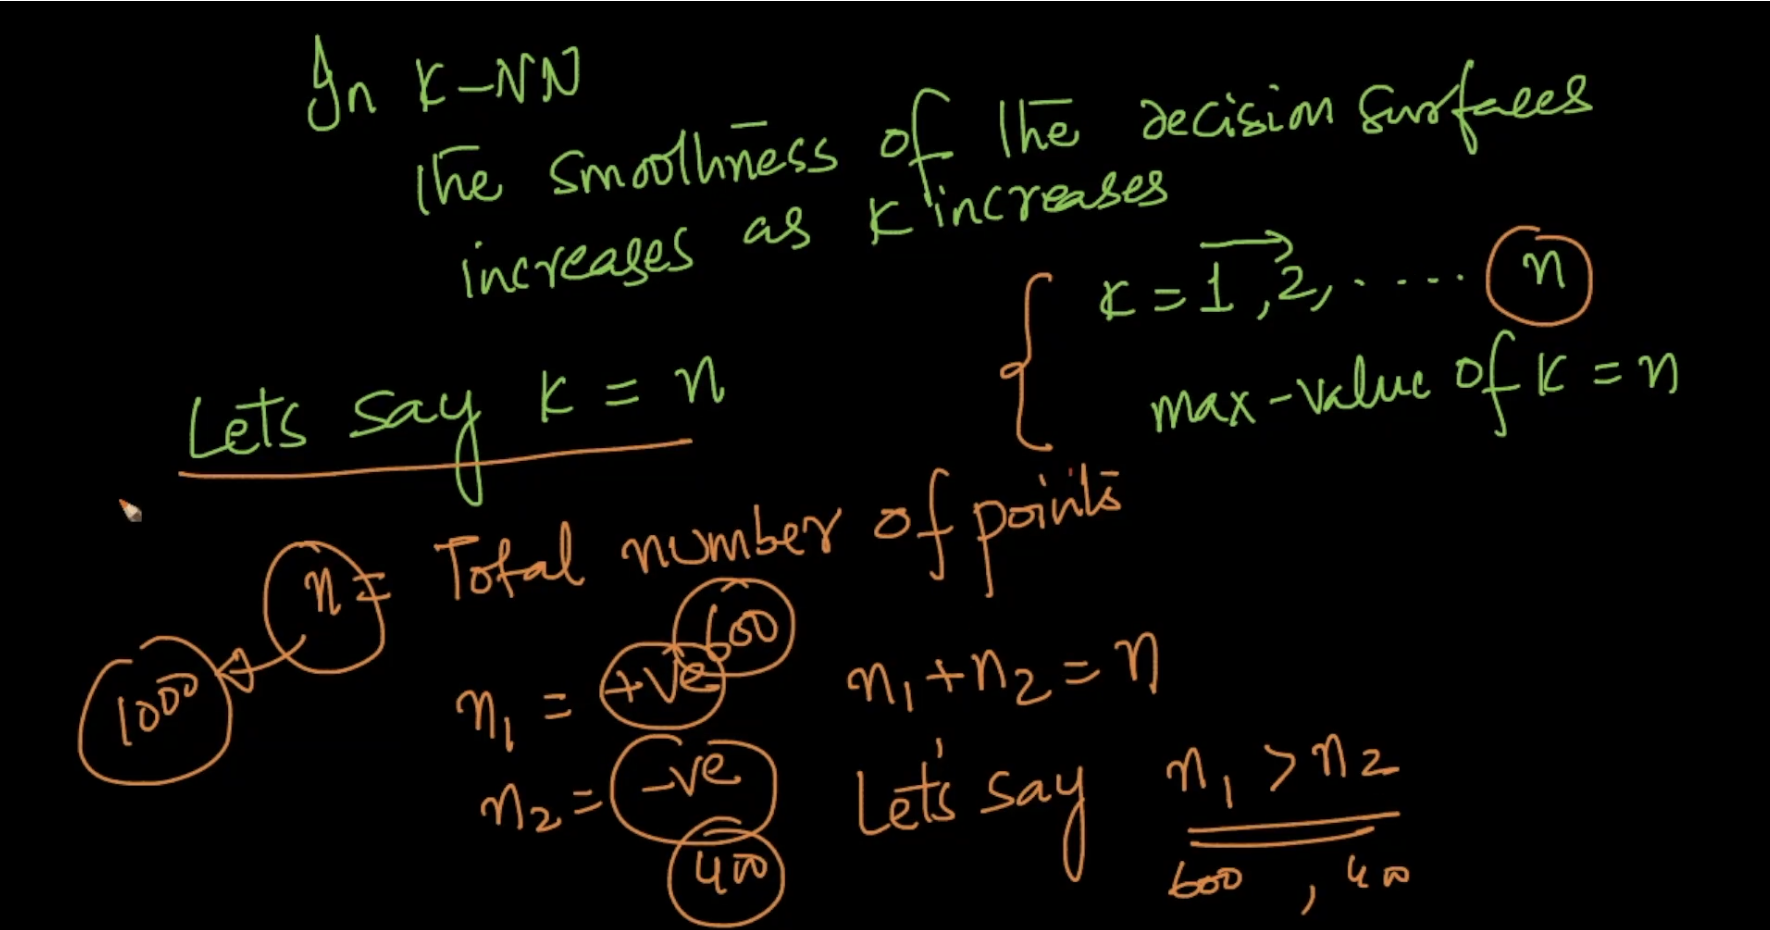 In K-NN
the smoothness of the decision surfaces
increases as K increases
K = 1, 2, ..... n
max-value of K = n
Lets say K = n
n = Total number of points
1000
n₁ = +ve 600
n₁ + n₂ = n
n₂ = -ve
400
Let's say n₁ > n₂
600, 400